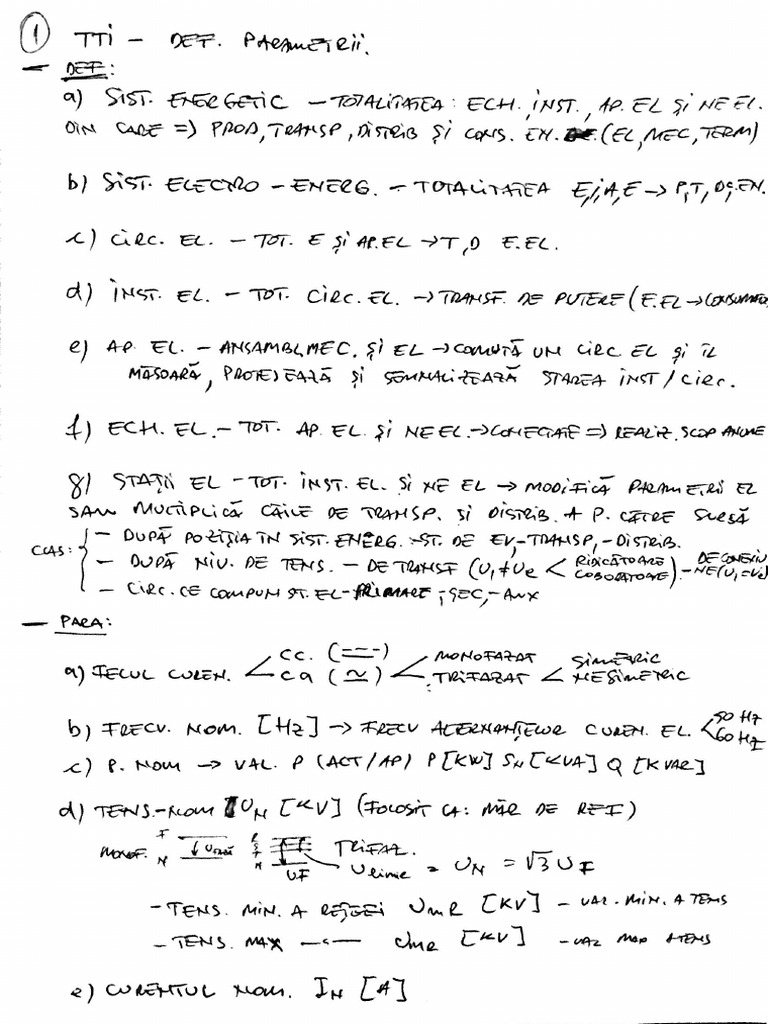 ① TTI – DEF. PARAMETRII.
– DEF:
a) SIST. ENERGETIC – TOTALITATEA: ECH., INST., AP. EL ȘI NE EL.
DIN CARE => PROD, TRANSP, DISTRIB ȘI CONS. EN. (EL, MEC, TERM)
b) SIST. ELECTRO – ENERG. – TOTALITATEA E, I, A, E → P, T, D, C, EN.
c) CIRC. EL. – TOT. E ȘI AP. EL → T, D E. EL.
d) INST. EL. – TOT. CIRC. EL. → TRANSF. DE PUTERE (E. EL →
e) AP. EL. – ANSAMBL, MEC. ȘI EL → COMUTĂ UN CIRC. EL ȘI ÎL
MĂSOARĂ, PROTEJEAZĂ ȘI SEMNALIZEAZĂ STAREA INST / CIRC.
f) ECH. EL. – TOT. AP. EL. ȘI NE EL. → CONECTATE => REALIZ. SCOP ANUME
g) STAȚII EL – TOT. INST. EL. ȘI NE EL → MODIFICĂ PARAMETRII EL
SAU MULTIPLICĂ CĂILE DE TRANSP. ȘI DISTRIB. A P. CĂTRE SURSĂ
CLAS: – DUPĂ POZIȚIA ÎN SIST. ENERG. – ST. DE EV, – TRANSP, – DISTRIB.
– DUPĂ NIV. DE TENS. – DE TRANSF (U1 ≠ U2 < RIDICĂTOARE COBORÂTOARE). – DE CONEXIUNE (U1 = U2)
– CIRC. CE COMPUN ST. EL – PRIMARE, – SEC, – AUX
– PARA:
a) FELUL CUREN. < CC. (===) CA (≃) < MONOFAZAT TRIFAZAT < SIMETRIC NESIMETRIC
b) FRECV. NOM. [HZ] → FRECV ALTERNANȚELOR CUREN. EL. < 50 HZ 60 HZ
c) P. NOM → VAL. P (ACT/AP) P [KW] SN [KVA] Q [KVAR]
d) TENS. – NOM UN [KV] (FOLOSIT CA: MĂR DE REF)
MONOF. F N R S T N TRIFAZ.
UF U linie = UN = √3 UF
– TENS. MIN. A REȚELEI UmR [KV] – VAL. MIN. A TENS
– TENS. MAX –"– [KV] – VAL MAX A TENS
e) CURENTUL NOM. IN [A]